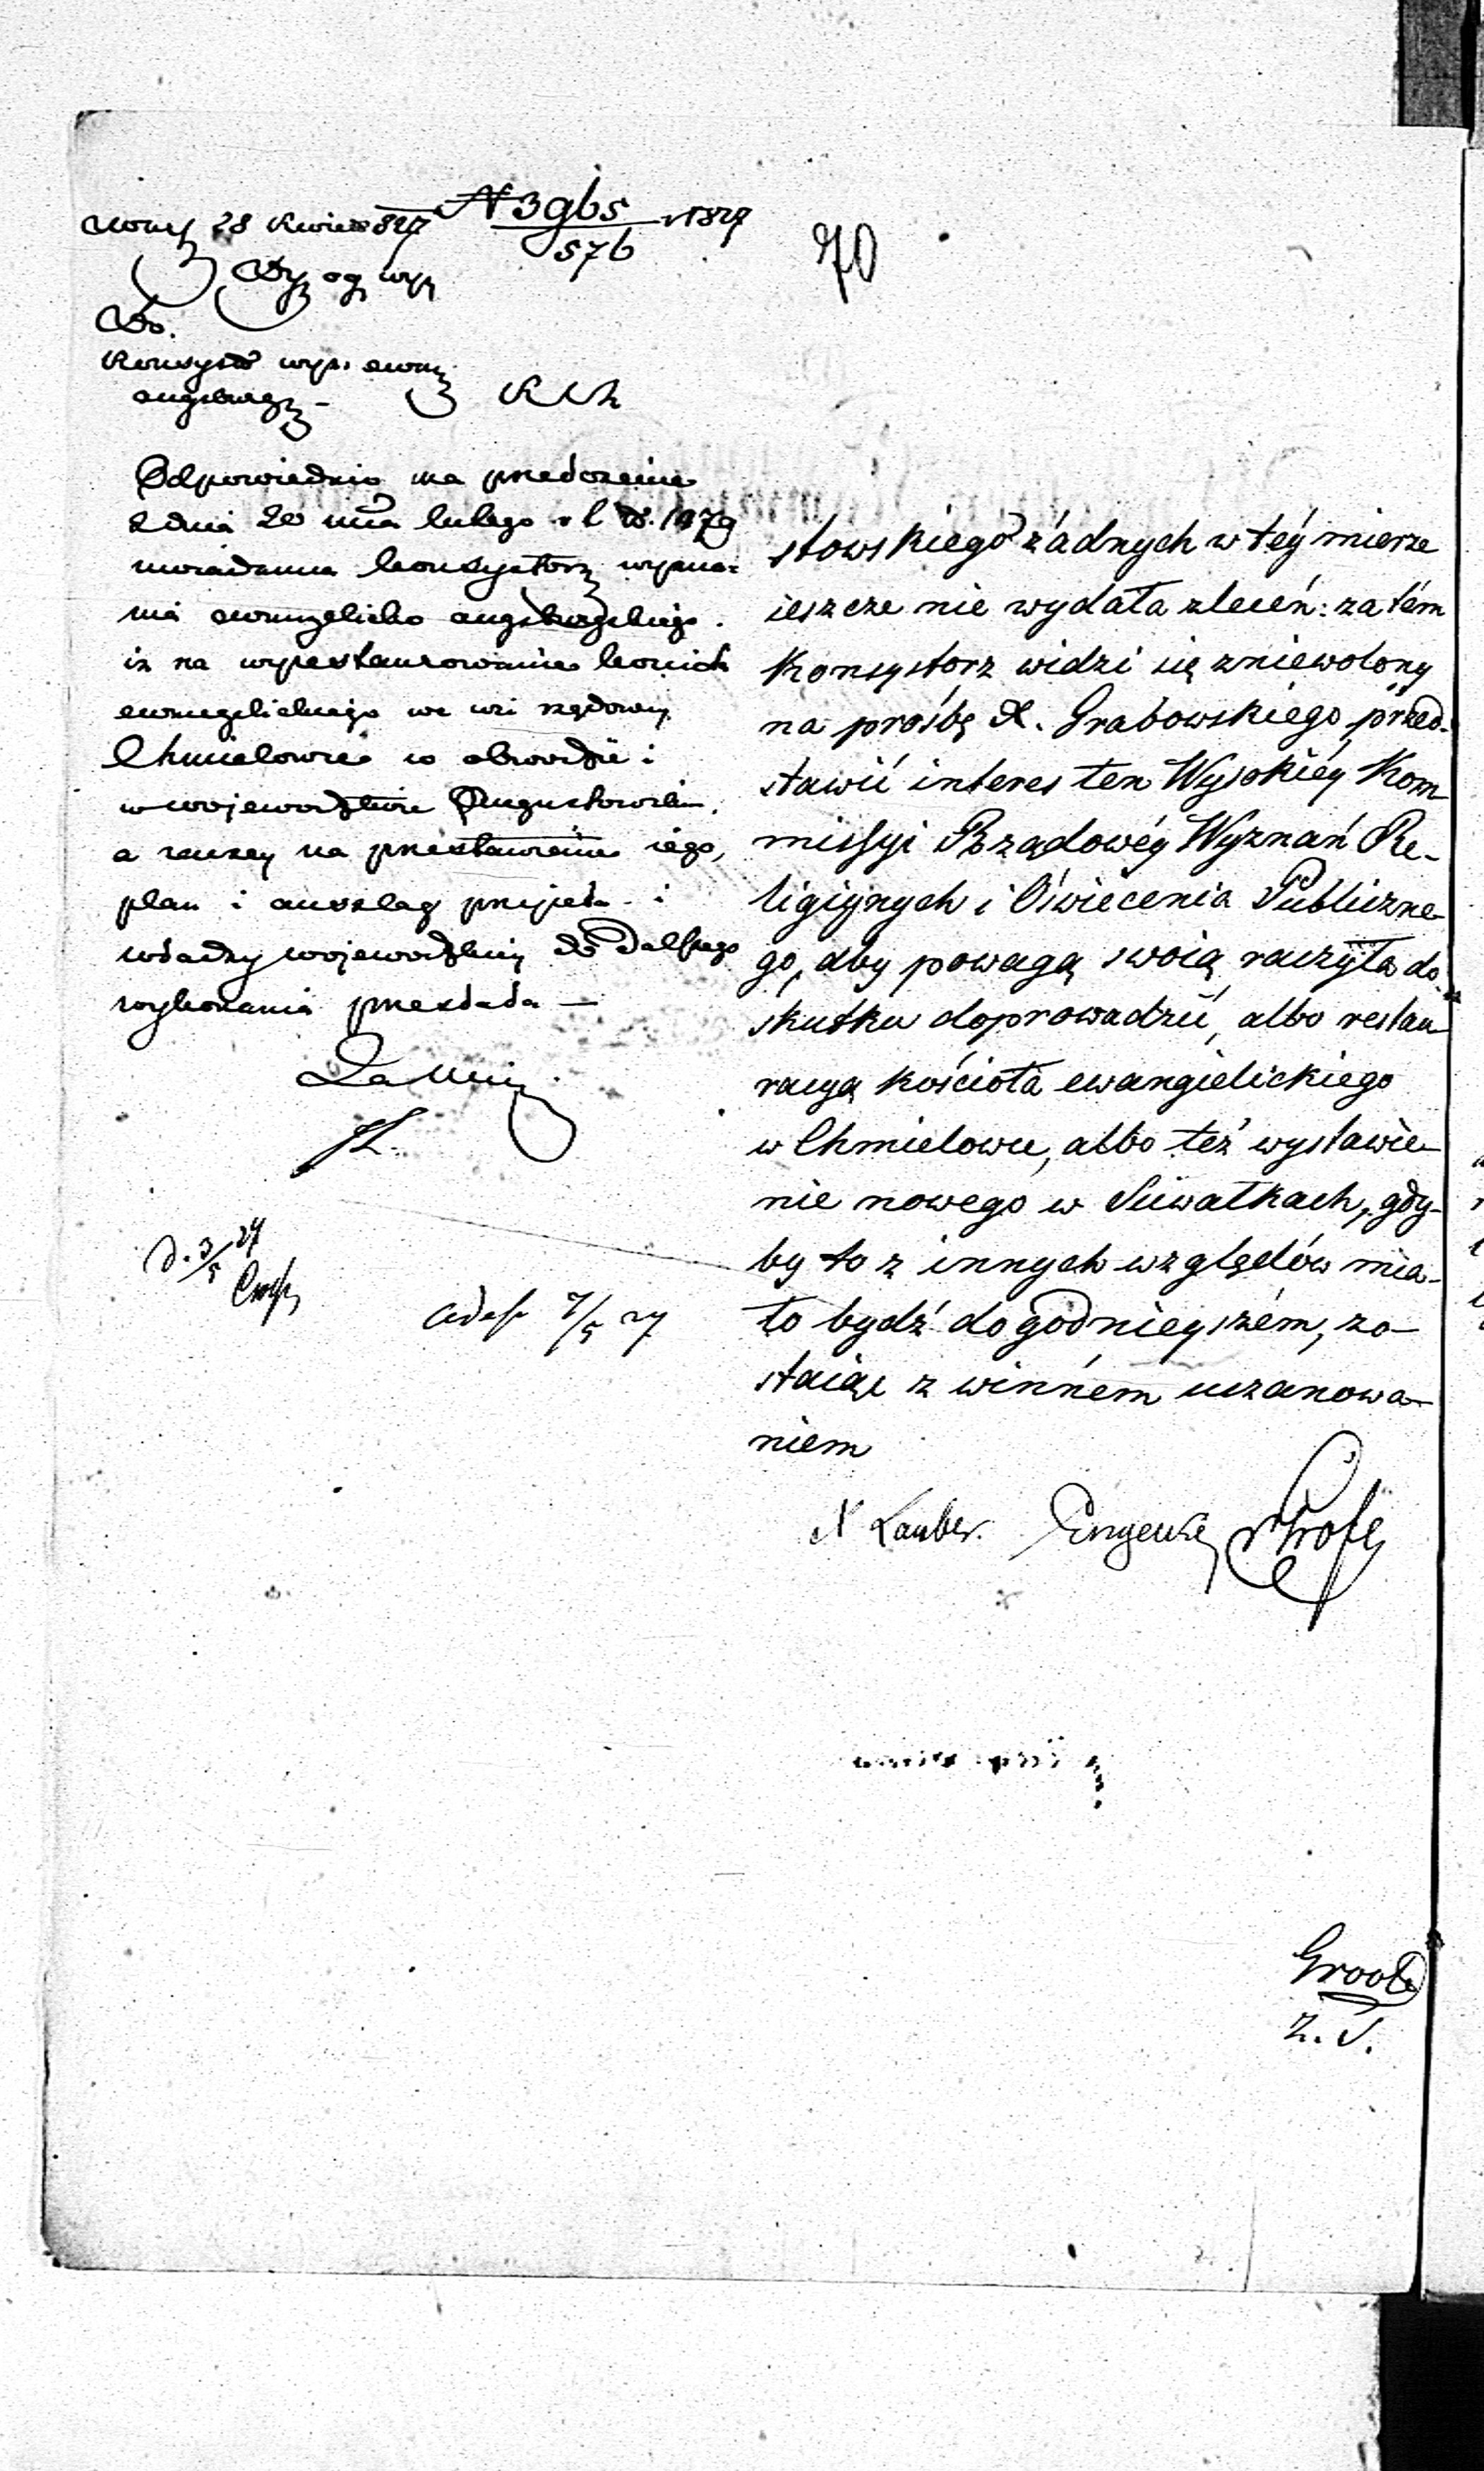 28 Kwiet 827 N 3965/576 1827
70
Do.
Konsyst wyz. ewan
augsburg
Odpowiednio na przedłożenie
z dnia 20 mca lutego r b
uwiadamia konsystorz wyzna=
nia ewangelicko augsburgskiego.
iż na wyrestaurowanie kościoła
ewangelickiego we wsi rządowej
Chmielowie w obwodzie i
w województwie Augustowskim,
a raczey na przestawienie iego,
plan i anszlag przyjęła i
władzy wojewodzkiej do dalszego
wykonania przesłała —
D. 3/5 27
7/5 27
stowskiego żadnych w téy mierze
ieszcze nie wydała zleceń: zatém
Konsystorz widzi się zniewolony
na prośbę X. Grabowskiego przed-
stawić interes ten Wysokiéy Kom
missyi Rządowéy Wyznań Re-
ligiynych i Oświecenia Publiczne-
go, aby powagą swoią raczyła do
skutku doprowadzić, albo restau-
racyą kościoła ewangielickiego
w Chmielowie, albo też wystawie-
nie nowego w Suwałkach, gdy-
by to z innych względów mia-
ło bydź dogodnieyszém, zo-
staiąc z winném uszanowa-
niem
Lauber.
Z. S.